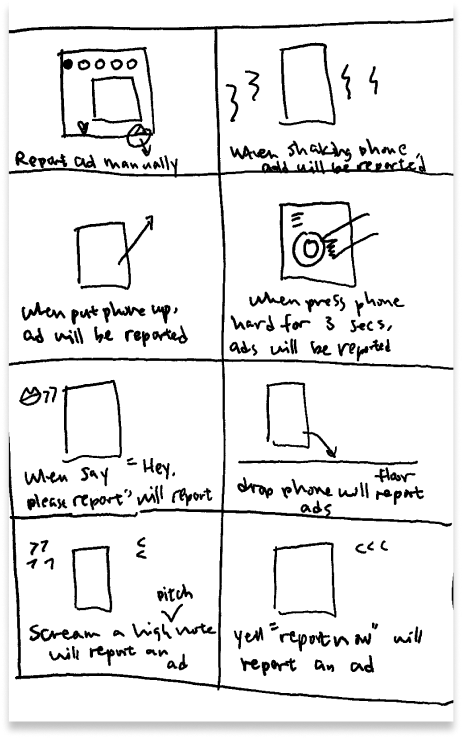 Report ad manually
When shaking phone,
add will be reported
When put phone up,
ad will be reported
When press phone
hard for 3 secs,
ads will be reported
When say "Hey,
please report", will report
floor
drop phone will report
ads
pitch
Scream a high note
will report an
ad
yell "report now" will
report an ad